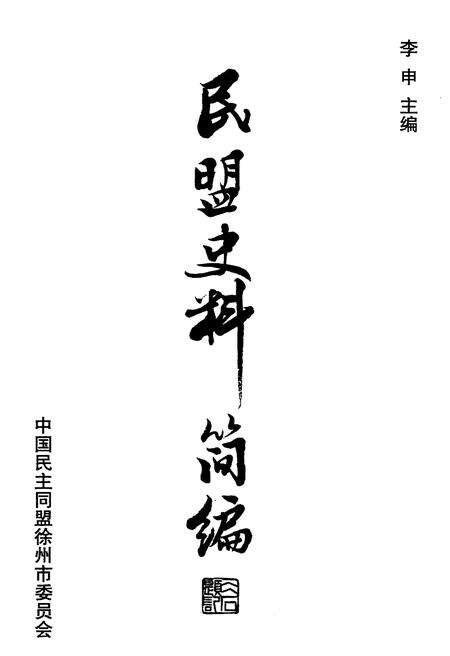 李申 主编
民盟史料简编
中国民主同盟徐州市委员会